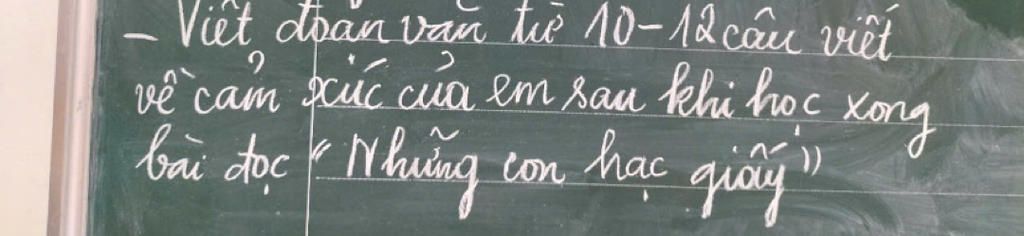 - Viết đoạn văn từ 10-12 câu viết
về cảm xúc của em sau khi học xong
bài đọc “Những con hạc giấy”